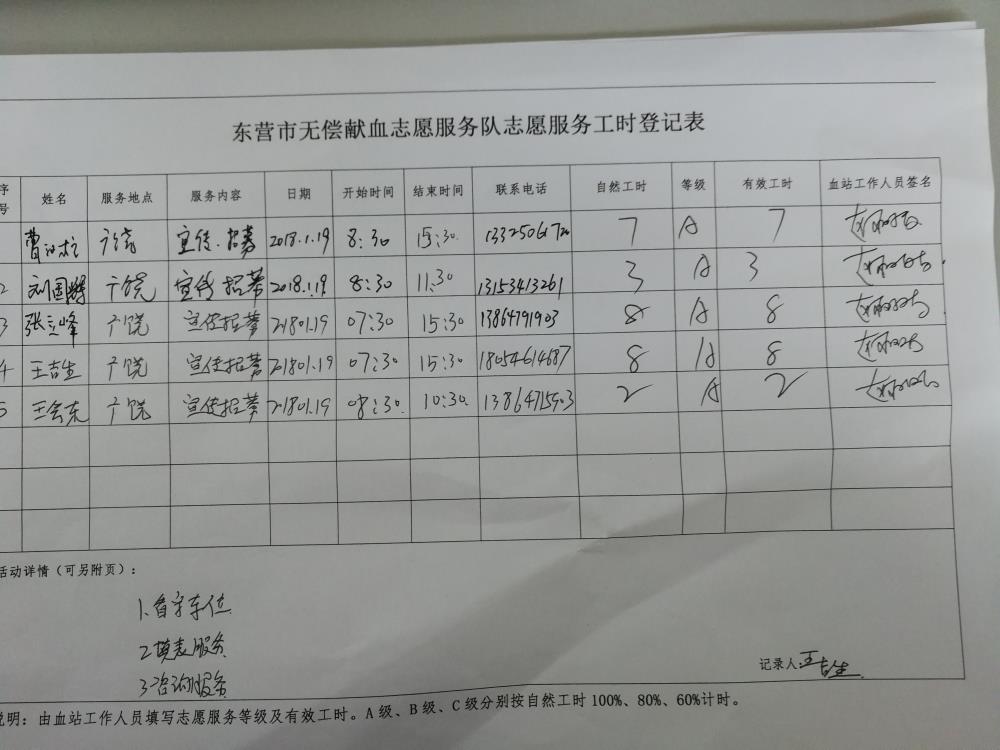 东营市无偿献血志愿服务队志愿服务工时登记表
序号 姓名 服务地点 服务内容 日期 开始时间 结束时间 联系电话 自然工时 等级 有效工时 血站工作人员签名
广饶 宣传.招募 2018.1.19 8:30 15:30. 7 A 7
2 刘国辉 广饶 宣传招募 2018.1.19 8:30 11:30 13153413261 3 A 3
3 张立峰 广饶 宣传招募 21801.19 07:30 15:30 13864791903 8 A 8
4 王吉生 广饶 宣传招募 21801.19 07:30 15:30 18054614687 8 A 8
5 王会东 广饶 宣传招募 21801.19 08:30. 10:30. 13864715903 2 A 2
活动详情（可另附页）：
1.看守车位
2填表服务
3.咨询服务
记录人:王吉生
说明：由血站工作人员填写志愿服务等级及有效工时。A级、B级、C级分别按自然工时100%、80%、60%计时。